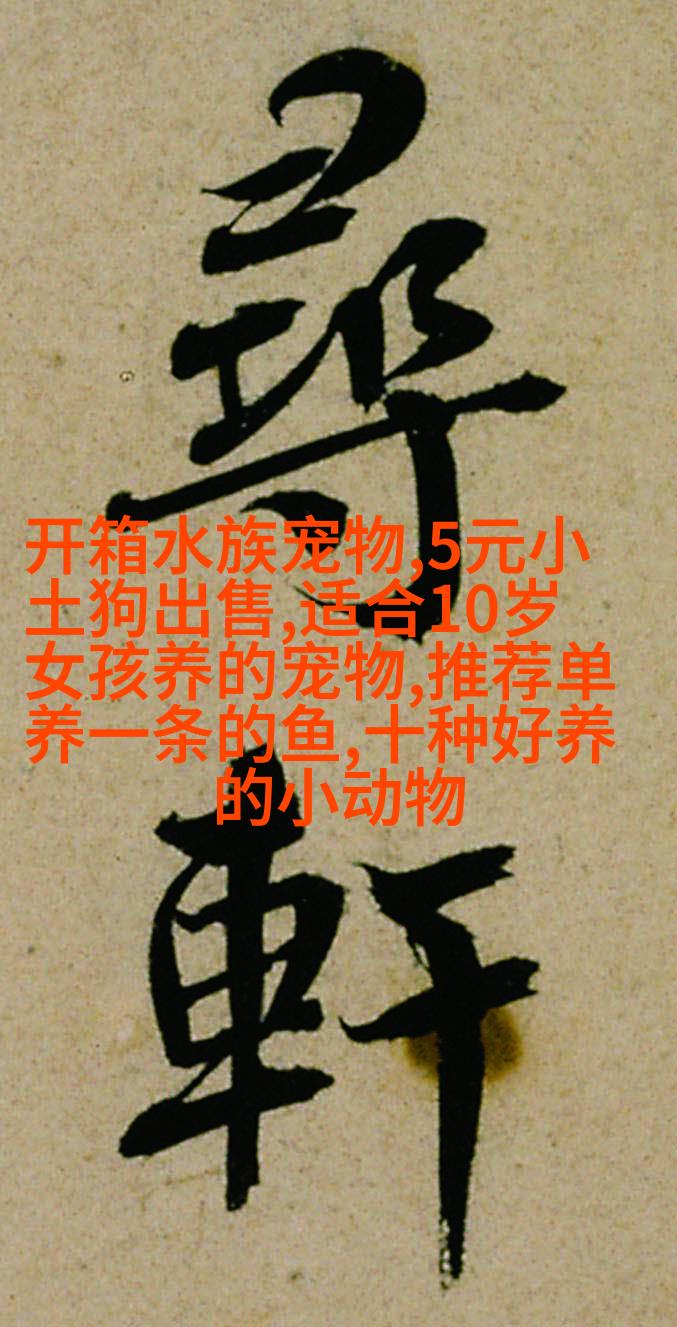 尋
开箱水族宠物,5元小
土狗出售,适合10岁
女孩养的宠物,推荐单
养一条的鱼,十种好养
的小动物
軒